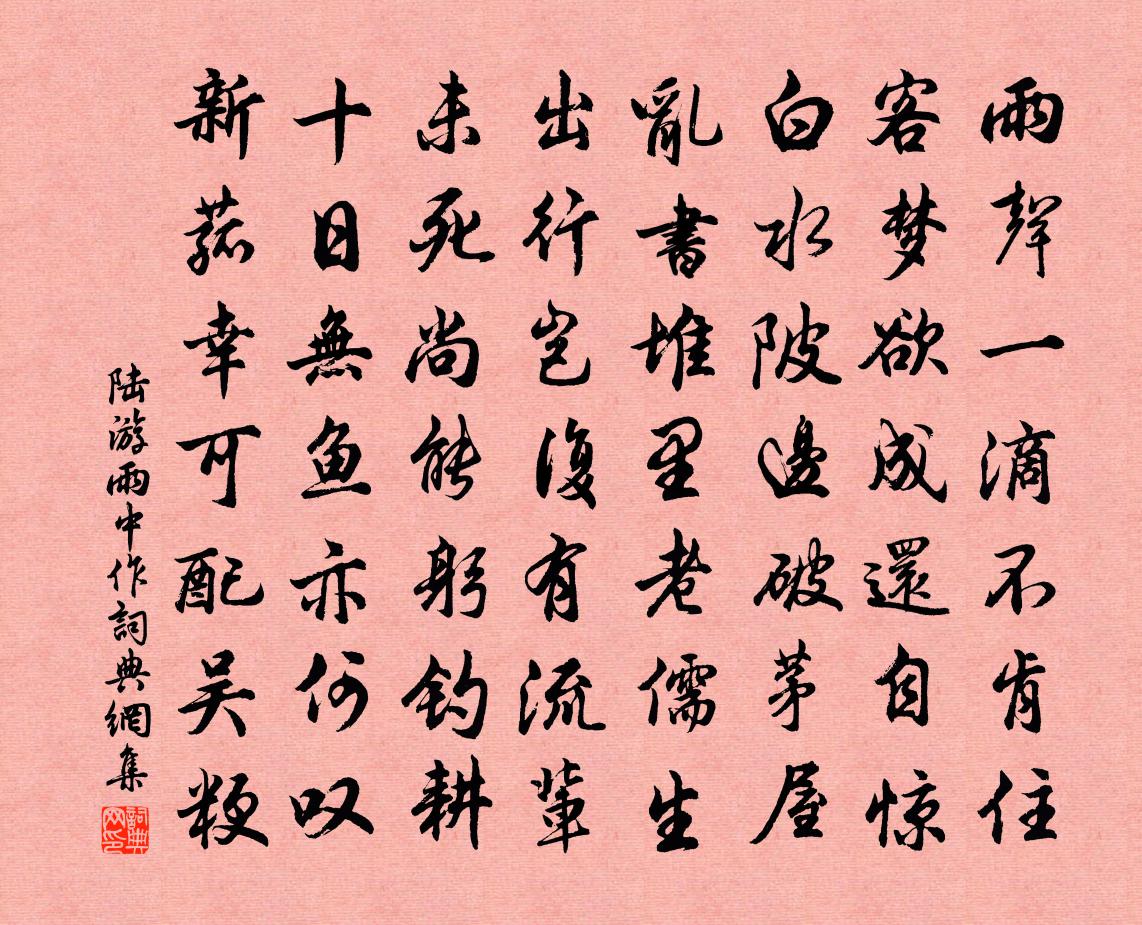 雨聲一滴不肯住
客梦欲成還自惊
白水陂邊破茅屋
亂書堆里老儒生
出行岂復有流輩
未死尚能躬钓耕
十日無鱼亦何叹
新菰幸可配吴粳
陆游雨中作詞典網集
詞典网印